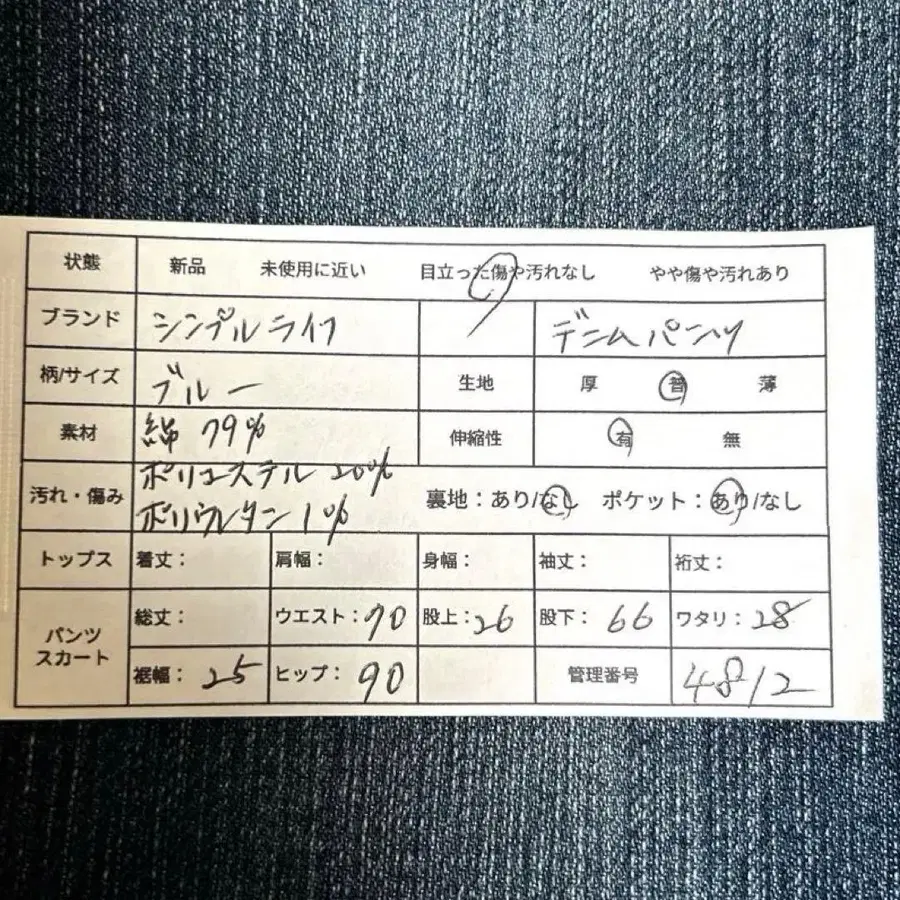 状態 新品 未使用に近い 目立った傷や汚れなし やや傷や汚れあり
ブランド シンプルライフ デニムパンツ
柄/サイズ ブルー 生地 厚 普 薄
素材 綿 79% 伸縮性 有 無
ポリエステル 20%
汚れ・傷み ポリウレタン 1% 裏地：あり/なし ポケット：あり/なし
トップス 着丈： 肩幅： 身幅： 袖丈： 裄丈：
パンツ スカート 総丈： ウエスト：70 股上：26 股下：66 ワタリ：28
裾幅：25 ヒップ：90 管理番号 4812